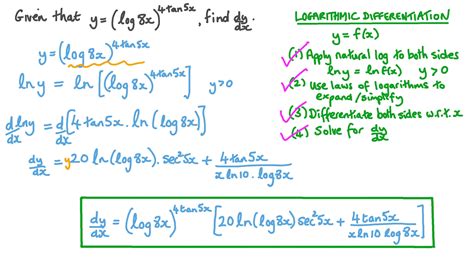 Given that y = (log 8x)^(4tan5x), find dy/dx.
y = (log 8x)^(4tan5x)
ln y = ln [(log 8x)^(4tan5x)] y > 0
d/dx ln y = d/dx [4 tan5x . ln (log 8x)]
dy/dx = y 20 ln (log 8x) . sec²5x + 4tan5x / (x ln 10 . log 8x)
dy/dx = (log 8x)^(4tan5x) [20 ln (log 8x) sec²5x + 4tan5x / (x ln 10 log 8x)]
LOGARITHMIC DIFFERENTIATION
y = f(x)
(1) Apply natural log to both sides
ln y = ln f(x) y > 0
(2) Use laws of logarithms to
expand/simplify
(3) Differentiate both sides w.r.t. x
(4) Solve for dy/dx